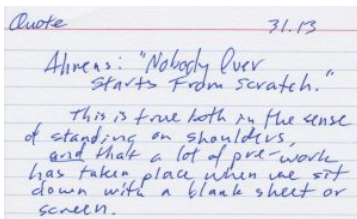 Quote 31.13
Ahrens: "Nobody Ever
Starts From Scratch."
This is true both in the sense
of standing on shoulders,
and that a lot of pre-work
has taken place when we sit
down with a blank sheet or
screen.